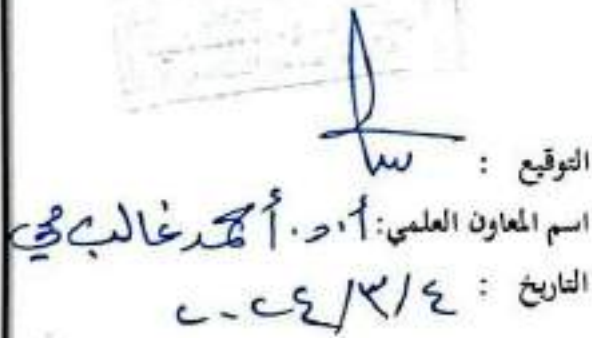 التوقيع :
اسم المعاون العلمي: أ.د. أحمد غالب محي
التاريخ : ٤/٣/٢٠٢٤